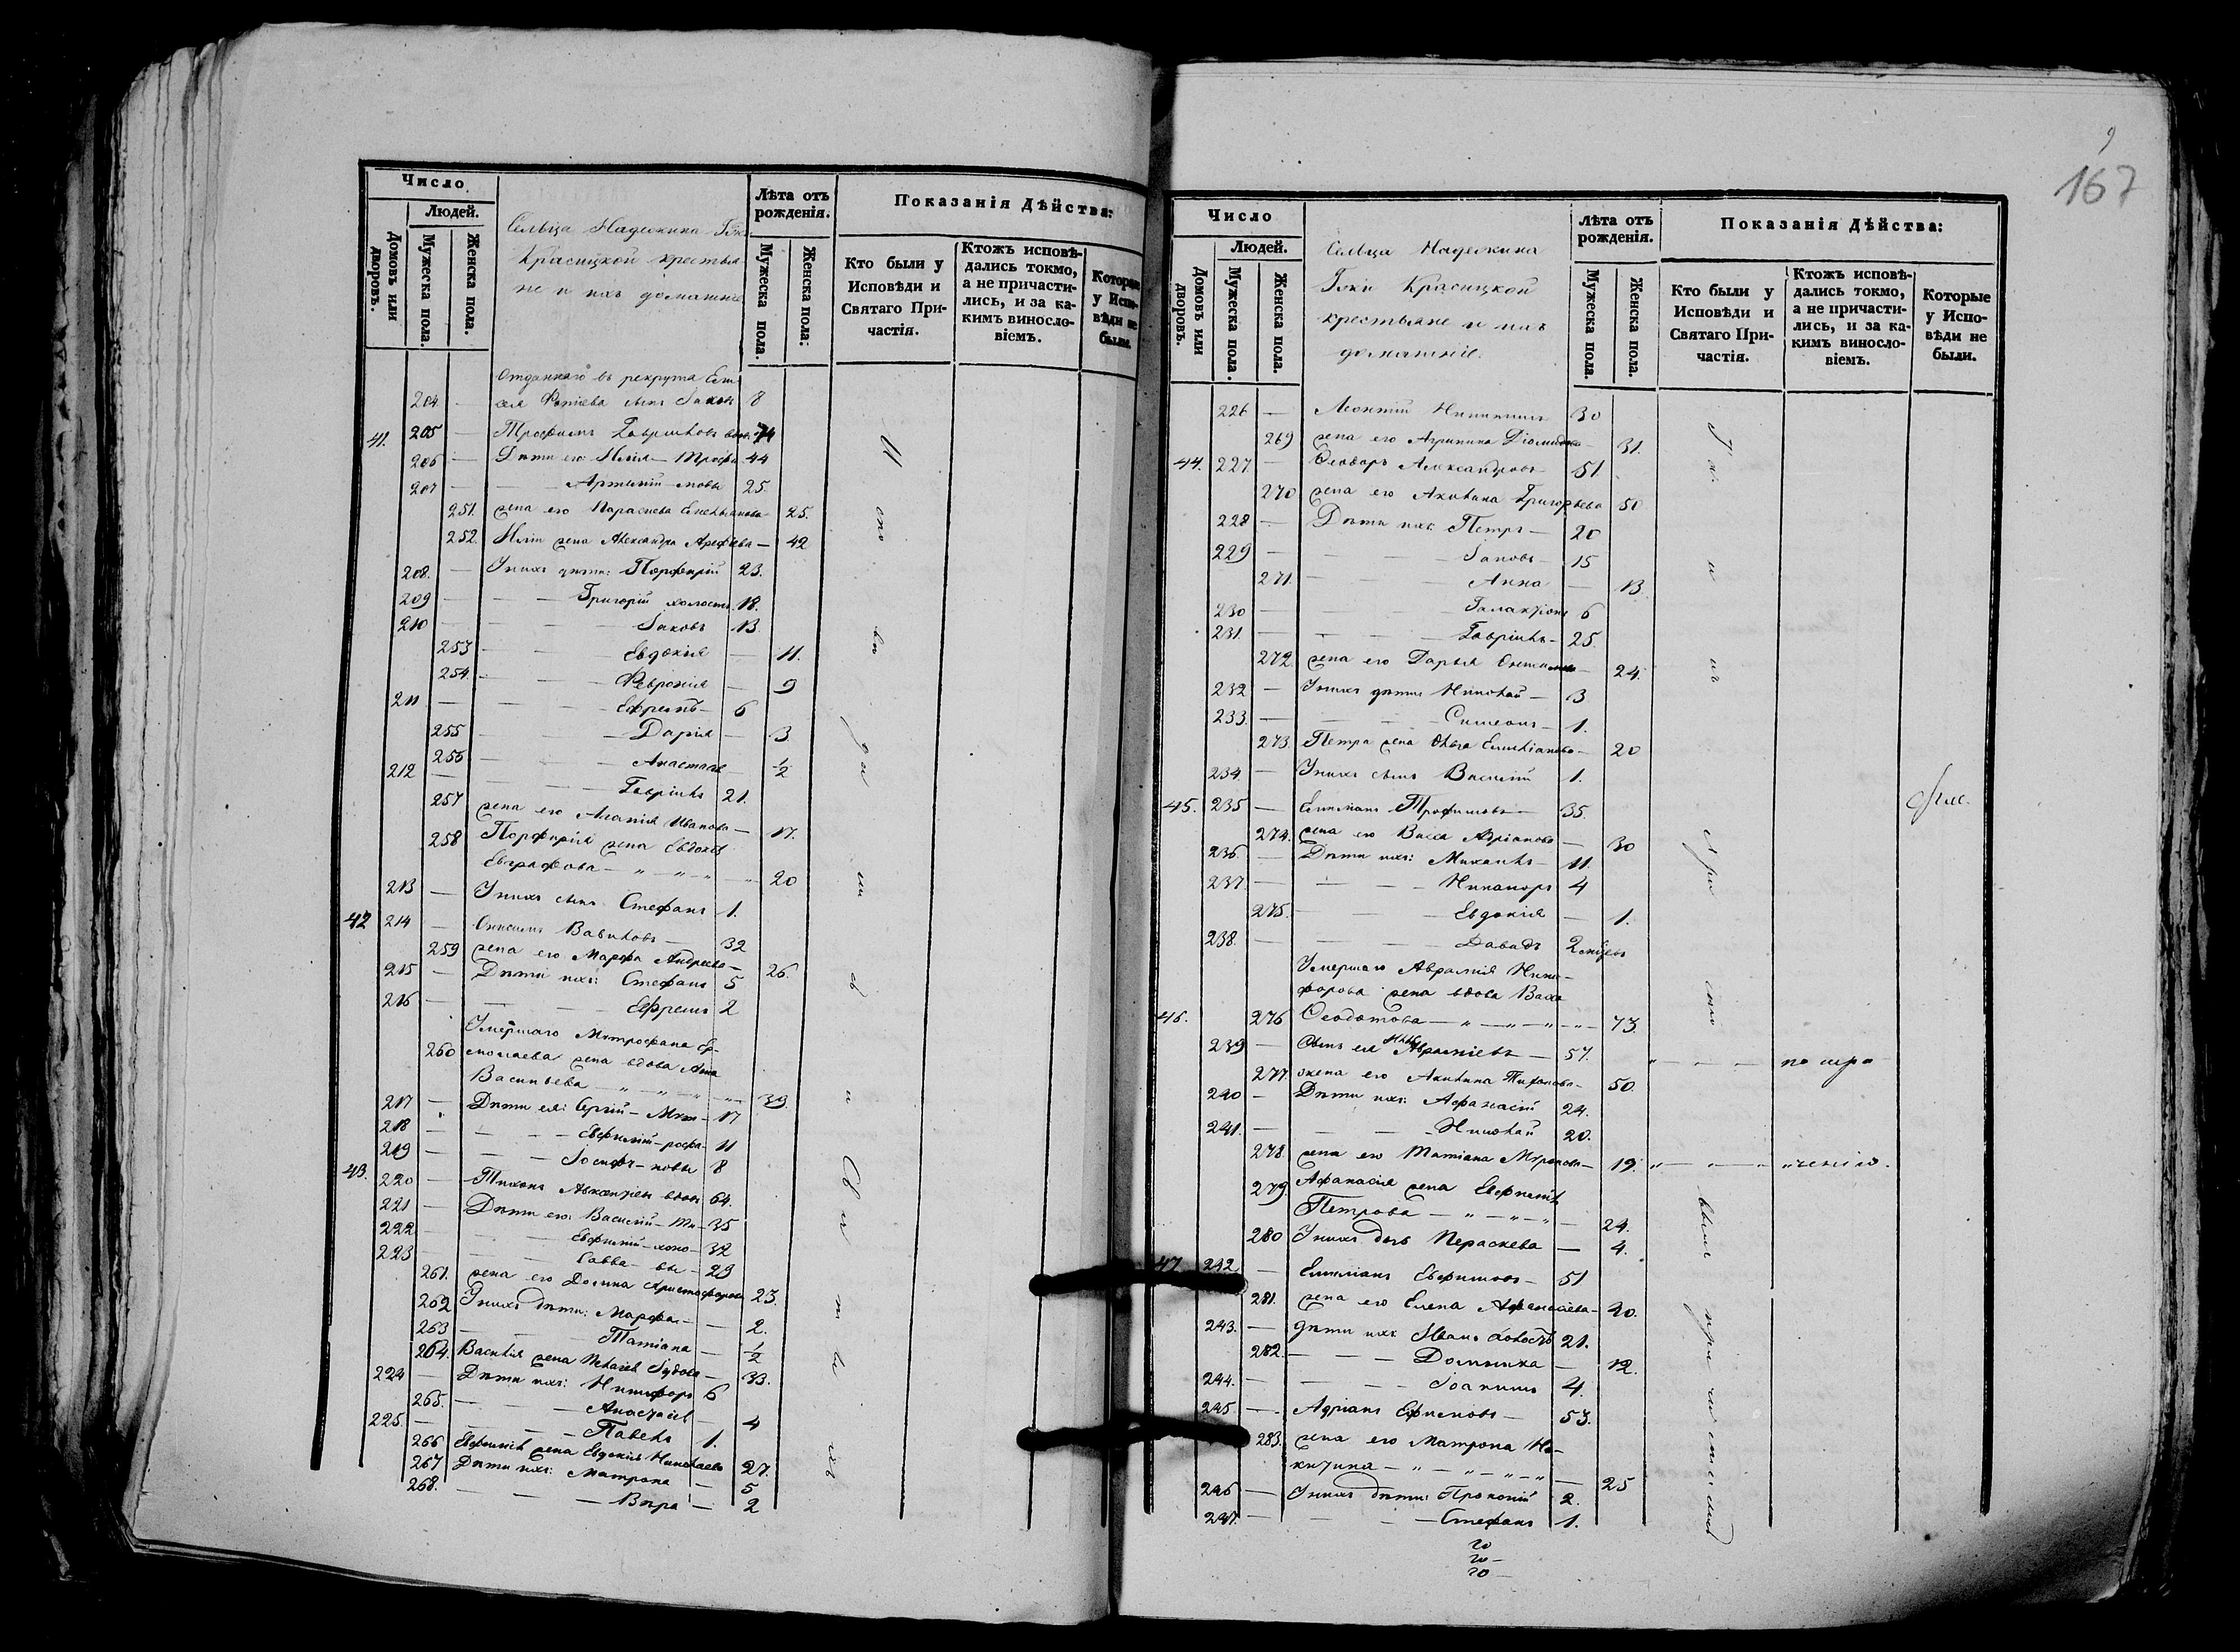 Число
Людей.
Домовъ или дворовъ.
Мужеска пола.
Женска пола.
Сельца Надежина Гжи
Красицкой крестья
не и ихъ домашніе
Лѣта отъ рожденія.
Мужеска пола.
Женска пола:
Показанія Дѣйства:
Кто были у Исповѣди и Святаго При-
частія.
Ктожъ исповѣ-
дались токмо,
а не причасти-
лись, и за ка-
кимъ винсло-
віемъ.
Которые
у Испо-
вѣди не
были.
Отданнаго въ рекрута
204 — сынъ Іаковъ 8
41. 205 — Трофимъ Гавриловъ вдовъ 74
206 — Дѣти его Илія — Трофи- 44
207 — — Артемій — мовы 25.
251. жена его Параскева Емельянова 25.
252. Иліи жена Александра Арефьева — 42
208. — У нихъ дѣти: Порфирій 23.
209 — — Григорій холостъ 18.
210 — — Іаковъ 13
253 — — Евдокія — 11.
254 — — Февронія — 9
211 — — Ефремъ — 6
255 — — Дарія — 3
256 — — Анастасія — 1/2
212 — — Гавріилъ 21.
257 жена его Агафія Иванова — 17.
258 Порфирія жена Евдокія
Евграфова — „ — „ — „ — 20
213 — У нихъ сынъ Стефанъ 1.
42 214 — Онисимъ Вавиловъ — 32
259 жена его Марфа Андреева — 26.
215 — Дѣти ихъ: Стефанъ 5
216 — — Ефремъ 2
Умершаго Митрофана Ер-
260 молаева жена вдова Анна
Васильева — „ — „ — 39.
217 — Дѣти ея: Сергій — Мит- 17
218 — — Евфимій — рофа- 11
219 — — Іосифъ — новы 8
43. 220 — Тихонъ Авксентіевъ вдовъ 64.
221 — Дѣти его: Василій — Ти- 35
222 — — Евфимій — хоно- 32
223 — — Савва — вы — 23
261. жена его Домна Христофорова 23.
262 У нихъ дѣти: Марфа — — 2.
263 — — Татіана — 1/2
264. Василія жена Пелагея — 33.
224 — Дѣти ихъ: Никифоръ 6
265. — — Анастасія — 4
225. — — Павелъ 1.
266 Евфимія жена Евдокія Николаева 27.
267 Дѣти ихъ: Матрона — 5
268. — — Вѣра — 2
167
Число
Людей.
Домовъ или дворовъ.
Мужеска пола.
Женска пола.
Сельца Надежина
Гжи Красицкой
крестьяне и ихъ
домашніе.
Лѣта отъ рожденія.
Мужеска пола.
Женска пола.
Показанія Дѣйства:
Кто были у Исповѣди и Святаго При-
частія.
Ктожъ исповѣ-
дались токмо,
а не причасти-
лись, и за ка-
кимъ виносло-
віемъ.
Которые
у Испо-
вѣди не
были.
226 — Леонтій Никитинъ 30
269 жена его Агрипина Діомидова — 31.
44. 227. — Ѳеодоръ Александровъ 51
270 жена его Акилина Григорьева 50
228 — Дѣти ихъ: Петръ — 20
229 — — Іаковъ — 15
271. — — Анна — 13
230 — — Галактіонъ 6
231. — — Гавріилъ — 25.
272. жена его Дарья — 24.
232 — У нихъ дѣти Николай — 3
233. — — Симеонъ — 1.
273. Петра жена Ольга Емиліанова — 20
234. — У нихъ сынъ Василій 1.
45. 235 — Емиліанъ Трофимовъ — 35.
274. жена его Васса Адріанова — 30
236. — Дѣти ихъ: Михаилъ — 11.
237. — — Никаноръ 4
275. — — Евдокія — 1.
238. — — Давидъ 2 мѣсец
Умершаго Аврамія Ники-
форова жена вдова Васса
46. 276 Ѳеодотова — „ — „ — „ — 73.
239 — Сынъ ея Авраміевъ — 57. по отро
277. жена его Акилина Тихонова — 50.
240 — Дѣти ихъ: Афанасій 24.
241. — — Николай 20.
278. жена его Татіана Миронова — 19. „ — „ — „ ченію.
279. Афанасія жена Евфимія
Петрова — „ — „ — „ — 24.
280 У нихъ дочь Параскева — 4.
47. 242 — Емиліанъ Евфимовъ — 51
281. жена его Елена Афанасіева — 40.
243. — дѣти ихъ Иванъ холостъ 21.
282. — — Домника — 12.
244. — — Іоакимъ 4.
245. — Адріанъ Ефимовъ — 53.
283. жена его Матрона Ни-
китина — „ — „ — „ — 25
246 — У нихъ дѣти: Прокопій 2.
247. — — Стефанъ 1.